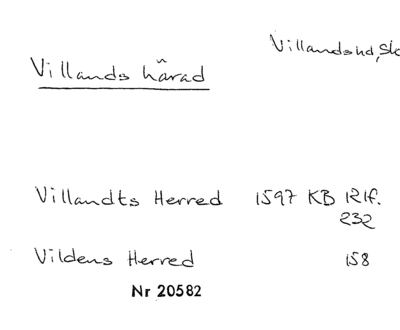 Villandshd, Sk
Villands härad
Villandts Herred 1597 KB 121f.
232
Vildens Herred 158
Nr 20582